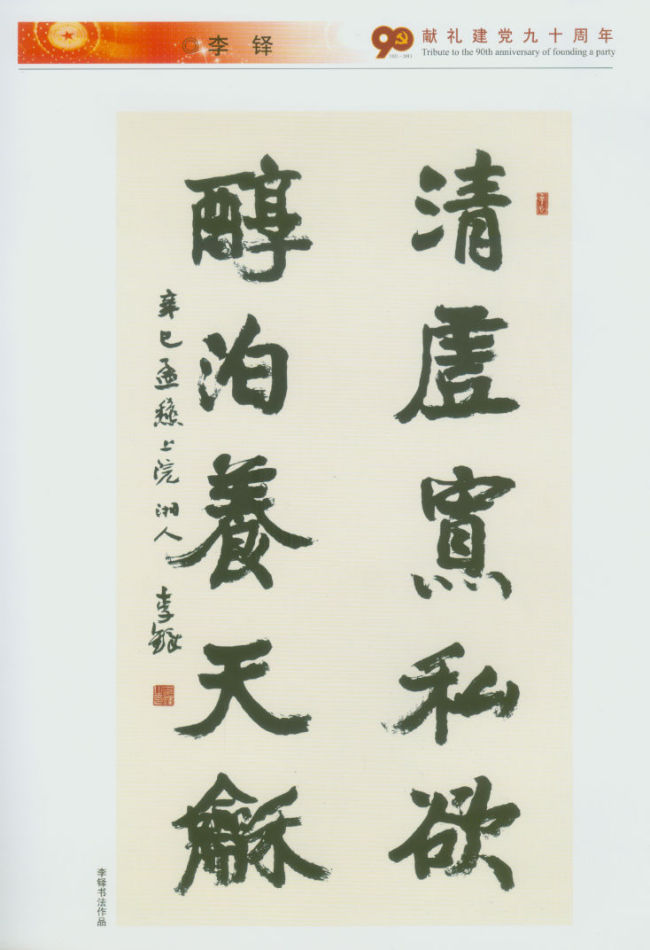 ◎ 李 铎
90
1921-2011
献礼建党九十周年
Tribute to the 90th anniversary of founding a party
清虚寡私欲
醇泊養天龢
辛巳孟穐上浣湘人 李鐸
李铎书法作品